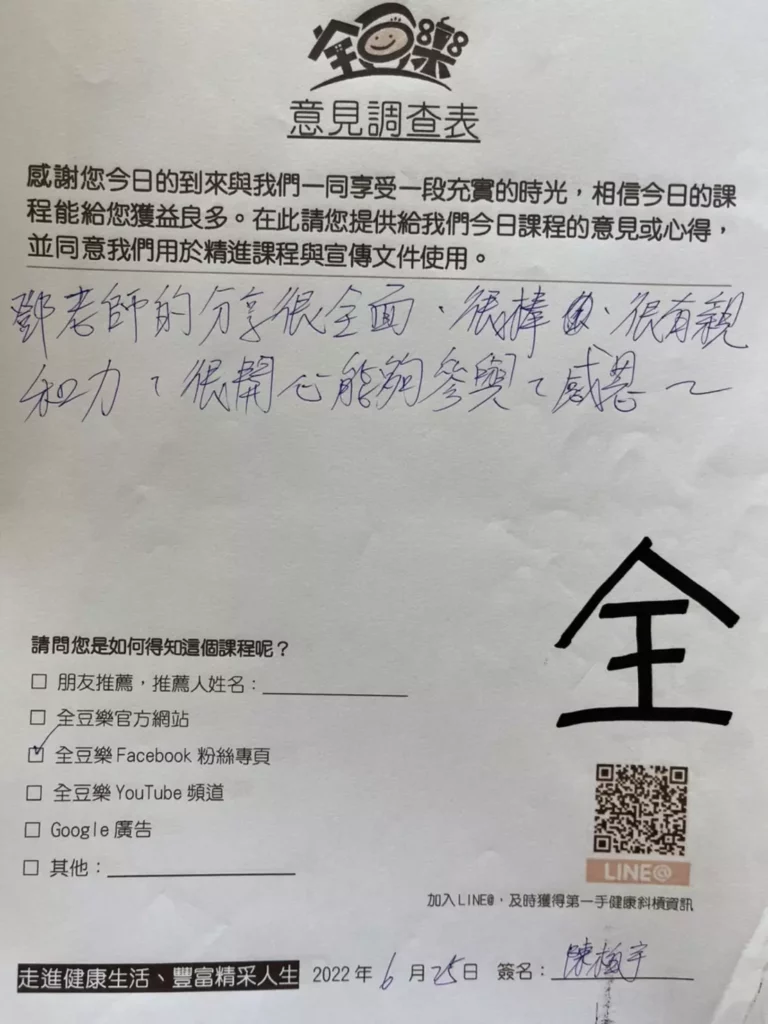 全豆樂
意見調查表
感謝您今日的到來與我們一同享受一段充實的時光，相信今日的課
程能給您獲益良多。在此請您提供給我們今日課程的意見或心得，
並同意我們用於精進課程與宣傳文件使用。
鄧老師的分享很全面、很棒、很有親
和力、很開心能夠參與、感恩~
全
請問您是如何得知這個課程呢？
□ 朋友推薦，推薦人姓名：
□ 全豆樂官方網站
☑ 全豆樂 Facebook 粉絲專頁
□ 全豆樂 YouTube 頻道
□ Google 廣告
□ 其他：
LINE@
加入 LINE@，及時獲得第一手健康斜槓資訊
走進健康生活、豐富精采人生 2022 年 6 月 25 日 簽名：陳宇